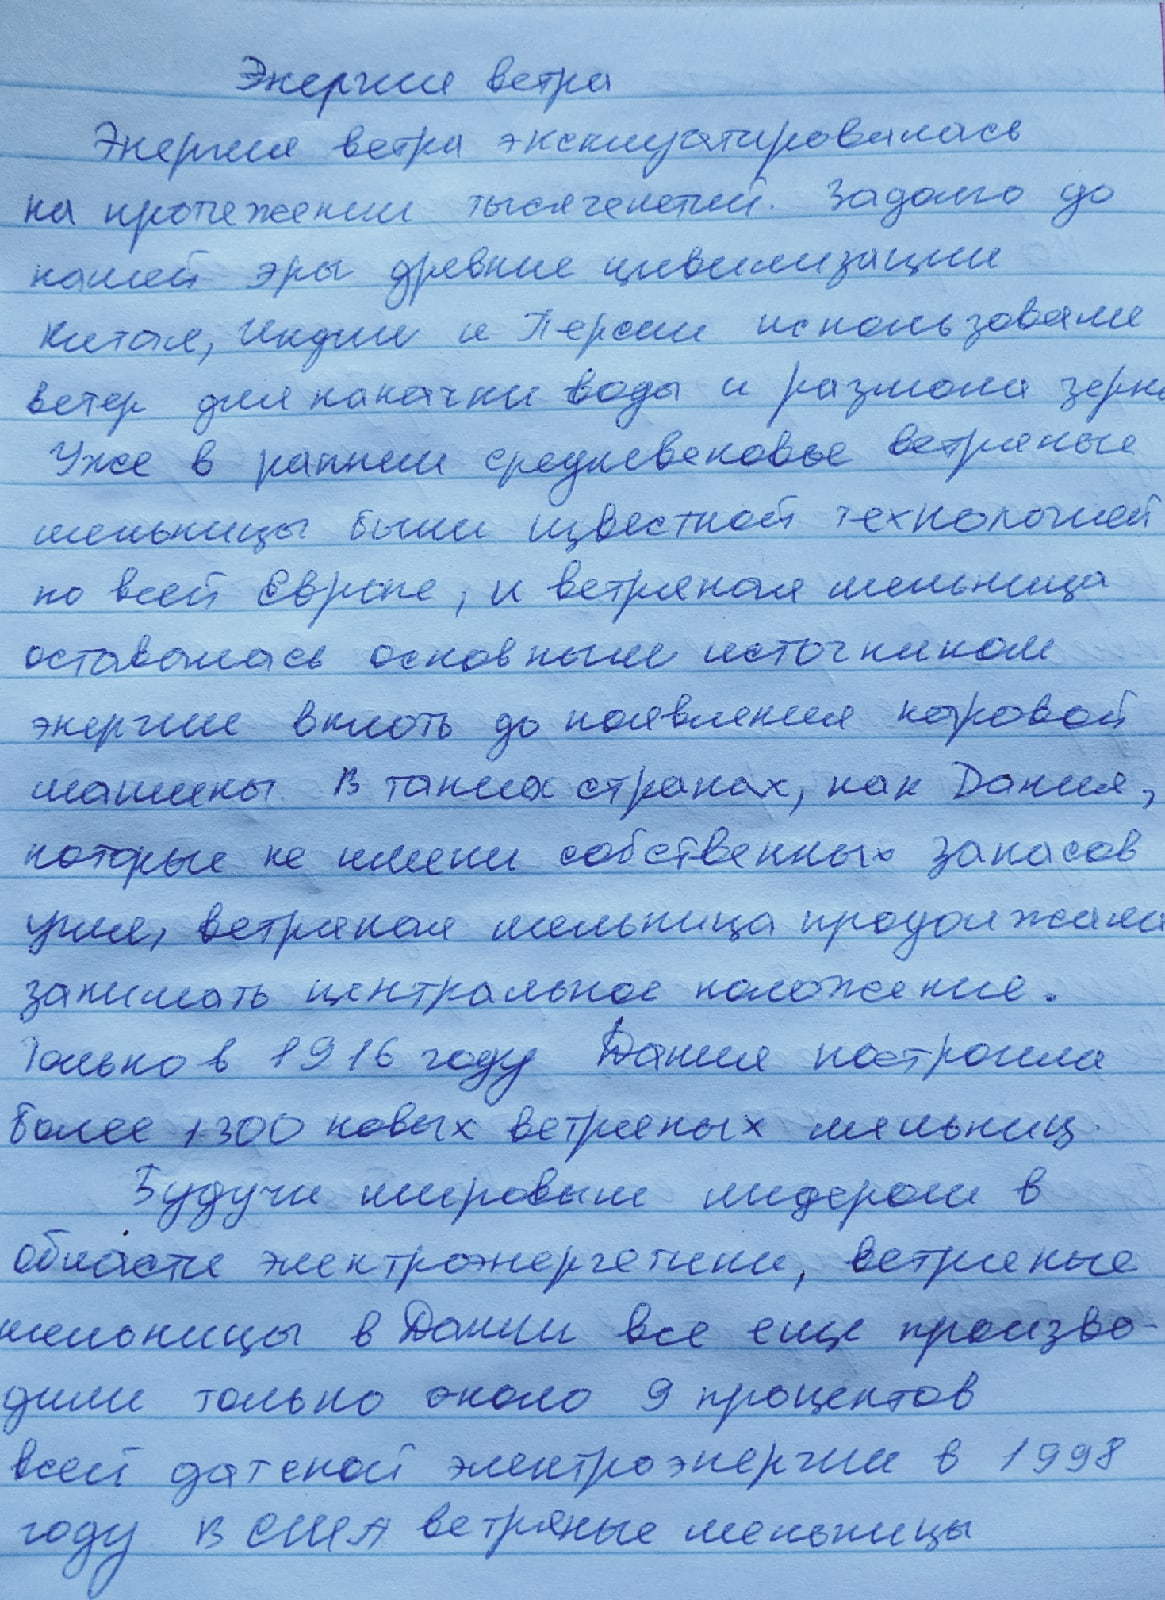 Энергия ветра
Энергия ветра эксплуатировалась
на протяжении тысячелетий. Задолго до
нашей эры древние цивилизации
Китая, Индии и Персии использовали
ветер для накачки воды и размола зерна
Уже в раннем средневековье ветряные
мельницы были известной технологией
по всей Европе, и ветряная мельница
оставалась основным источником
энергии вплоть до появления паровой
машины. В таких странах, как Дания,
которые не имели собственных запасов
угля, ветряная мельница продолжала
занимать центральное положение.
Только в 1916 году Дания построила
более 1300 новых ветряных мельниц.
Будучи мировым лидером в
области электроэнергетики, ветряные
мельницы в Дании все еще произво-
дили только около 9 процентов
всей датской электроэнергии в 1998
году В США ветряные мельницы